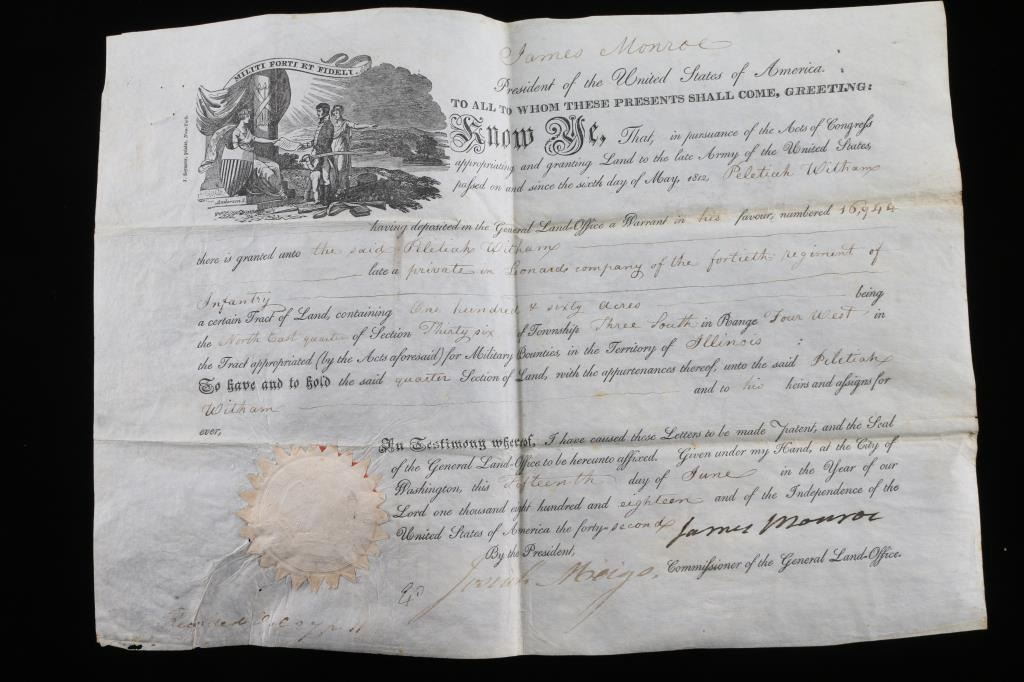 MILITI FORTI ET FIDELI.
James Monroe
President of the United States of America.
TO ALL TO WHOM THESE PRESENTS SHALL COME, GREETING:
Know Ye, That, in pursuance of the Acts of Congress
appropriating and granting Land to the late Army of the United States,
passed on and since the sixth day of May, 1812, Peletiah Witham
Anderson
having deposited in the General Land-Office a Warrant in his favour, numbered 16,944
there is granted unto the said Peletiah Witham
late a private in Leonards company of the fortieth regiment of
Infantry
being
a certain Tract of Land, containing One hundred & sixty acres
the North East quarter of Section Thirty six of Township Three South in Range Four West in
the Tract appropriated (by the Acts aforesaid) for Military Bounties, in the Territory of Illinois :
To have and to hold the said quarter Section of Land, with the appurtenances thereof, unto the said Peletiah
Witham and to his heirs and assigns for
ever,
In Testimony whereof, I have caused these Letters to be made Patent, and the Seal
of the General Land-Office to be hereunto affixed. Given under my Hand, at the City of
Washington, this fifteenth day of June in the Year of our
Lord one thousand eight hundred and eighteen and of the Independence of the
United States of America the forty-second James Monroe
By the President,
Josiah Meigs, Commissioner of the General Land-Office.
Recorded